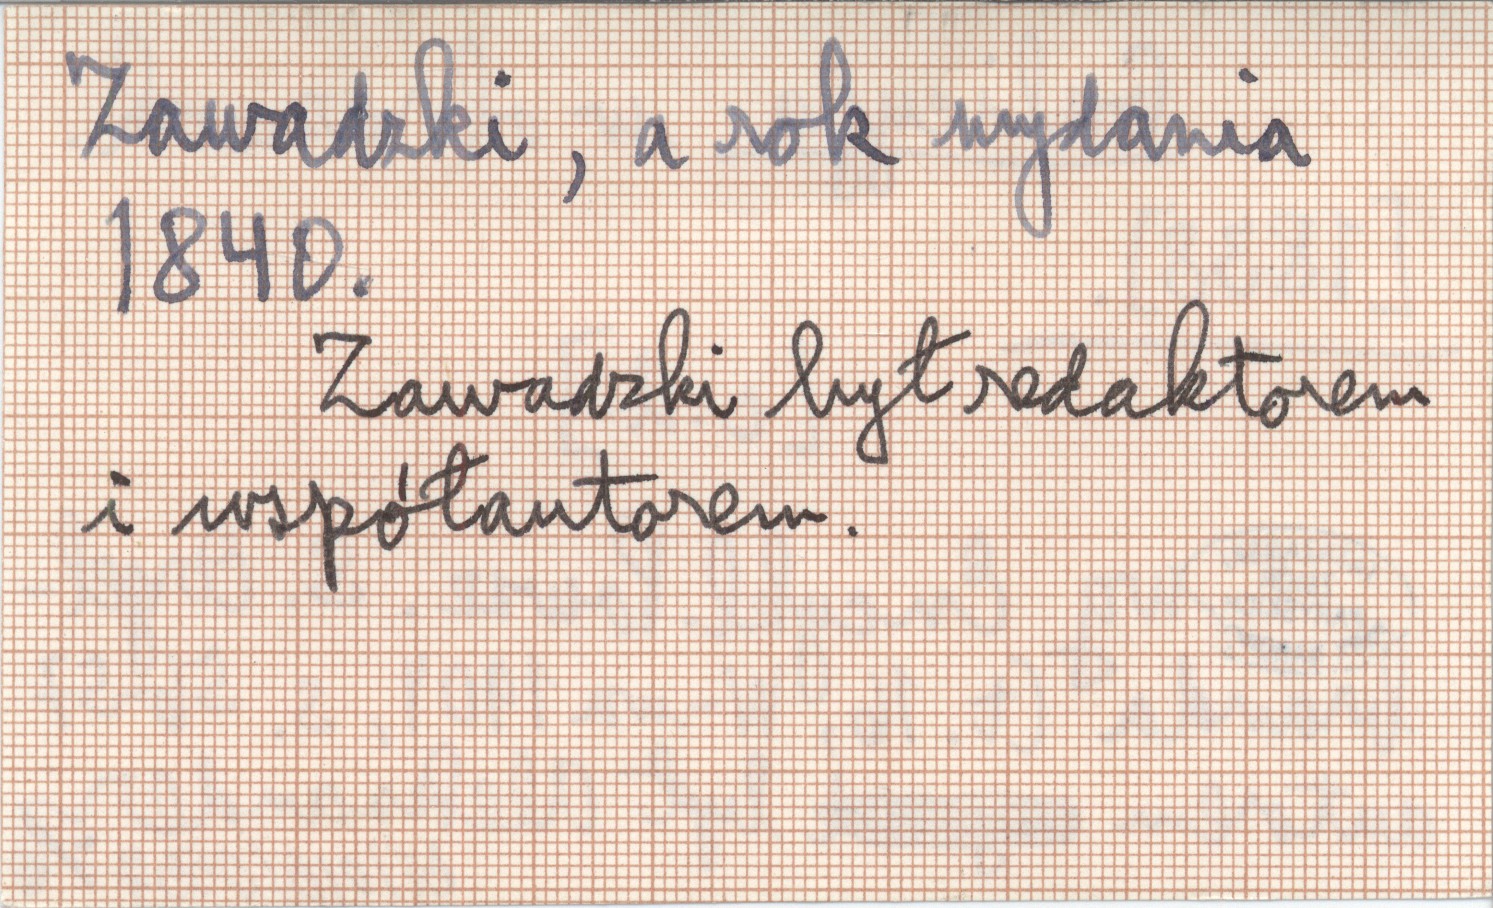 Zawadzki, a rok wydania
1840.
Zawadzki był redaktorem
i współautorem.